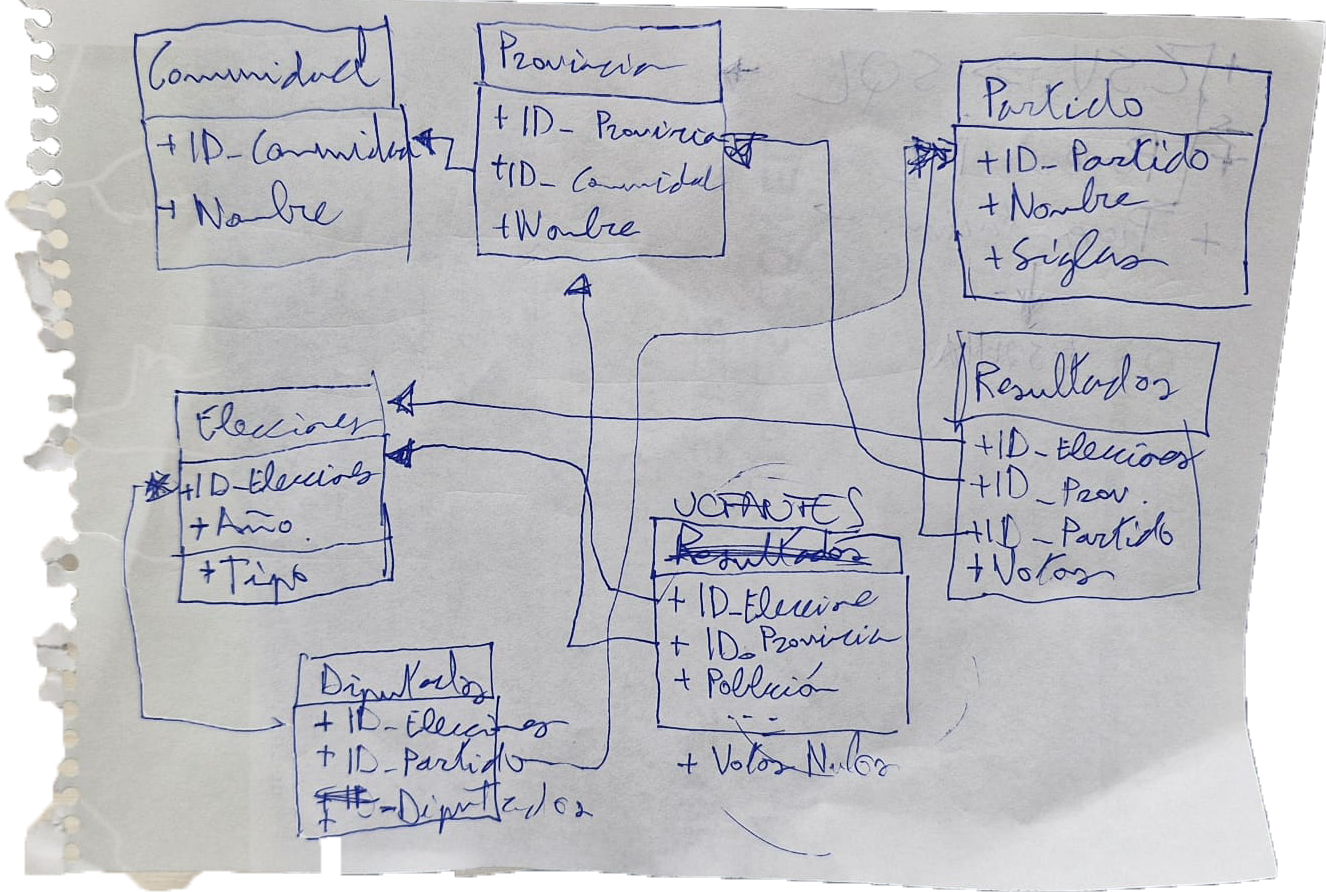 Comunidad
+ ID_Comunidad
+ Nombre
Provincia
+ ID_Provincia
+ ID_Comunidad
+ Nombre
Partido
+ ID_Partido
+ Nombre
+ Siglas
Elecciones
+ ID_Elecciones
+ Año
+ Tipo
Resultados
+ ID_Elecciones
+ ID_Prov.
+ ID_Partido
+ Votos
VOTANTES
Resultados
+ ID_Eleccione
+ ID_Provincia
+ Población
- - -
+ Votos Nulos
Diputados
+ ID_Elecciones
+ ID_Partido
+ Diputados